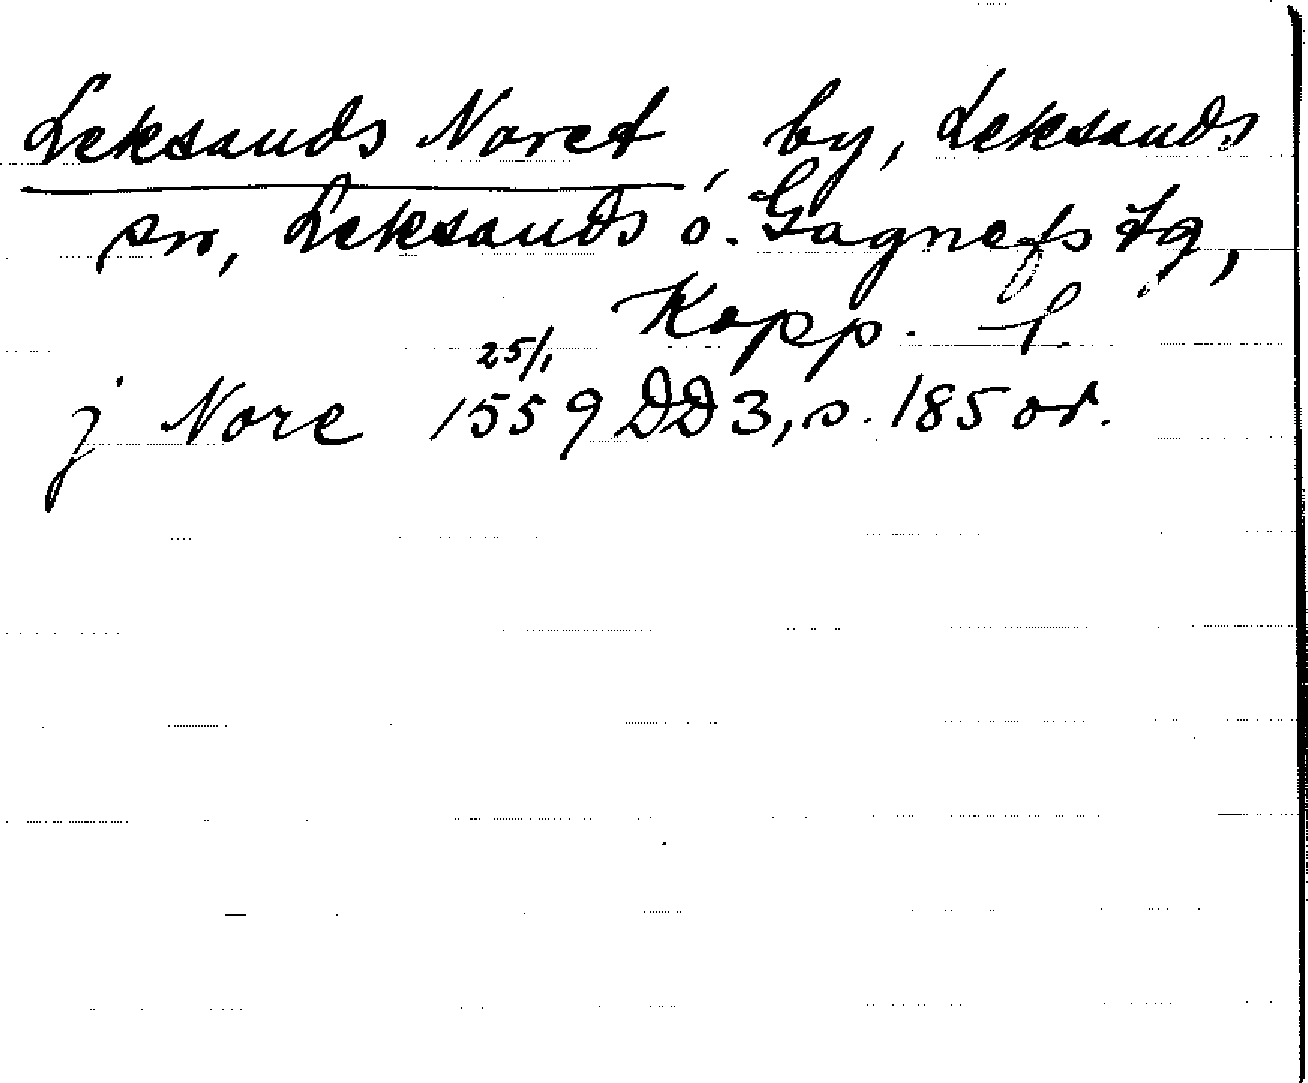 Leksands Noret, by, Leksands
sn, Leksands o. Gagnefs tg,
Kopp. l
j Nore 25/1 1559 DD 3, s. 185 or.